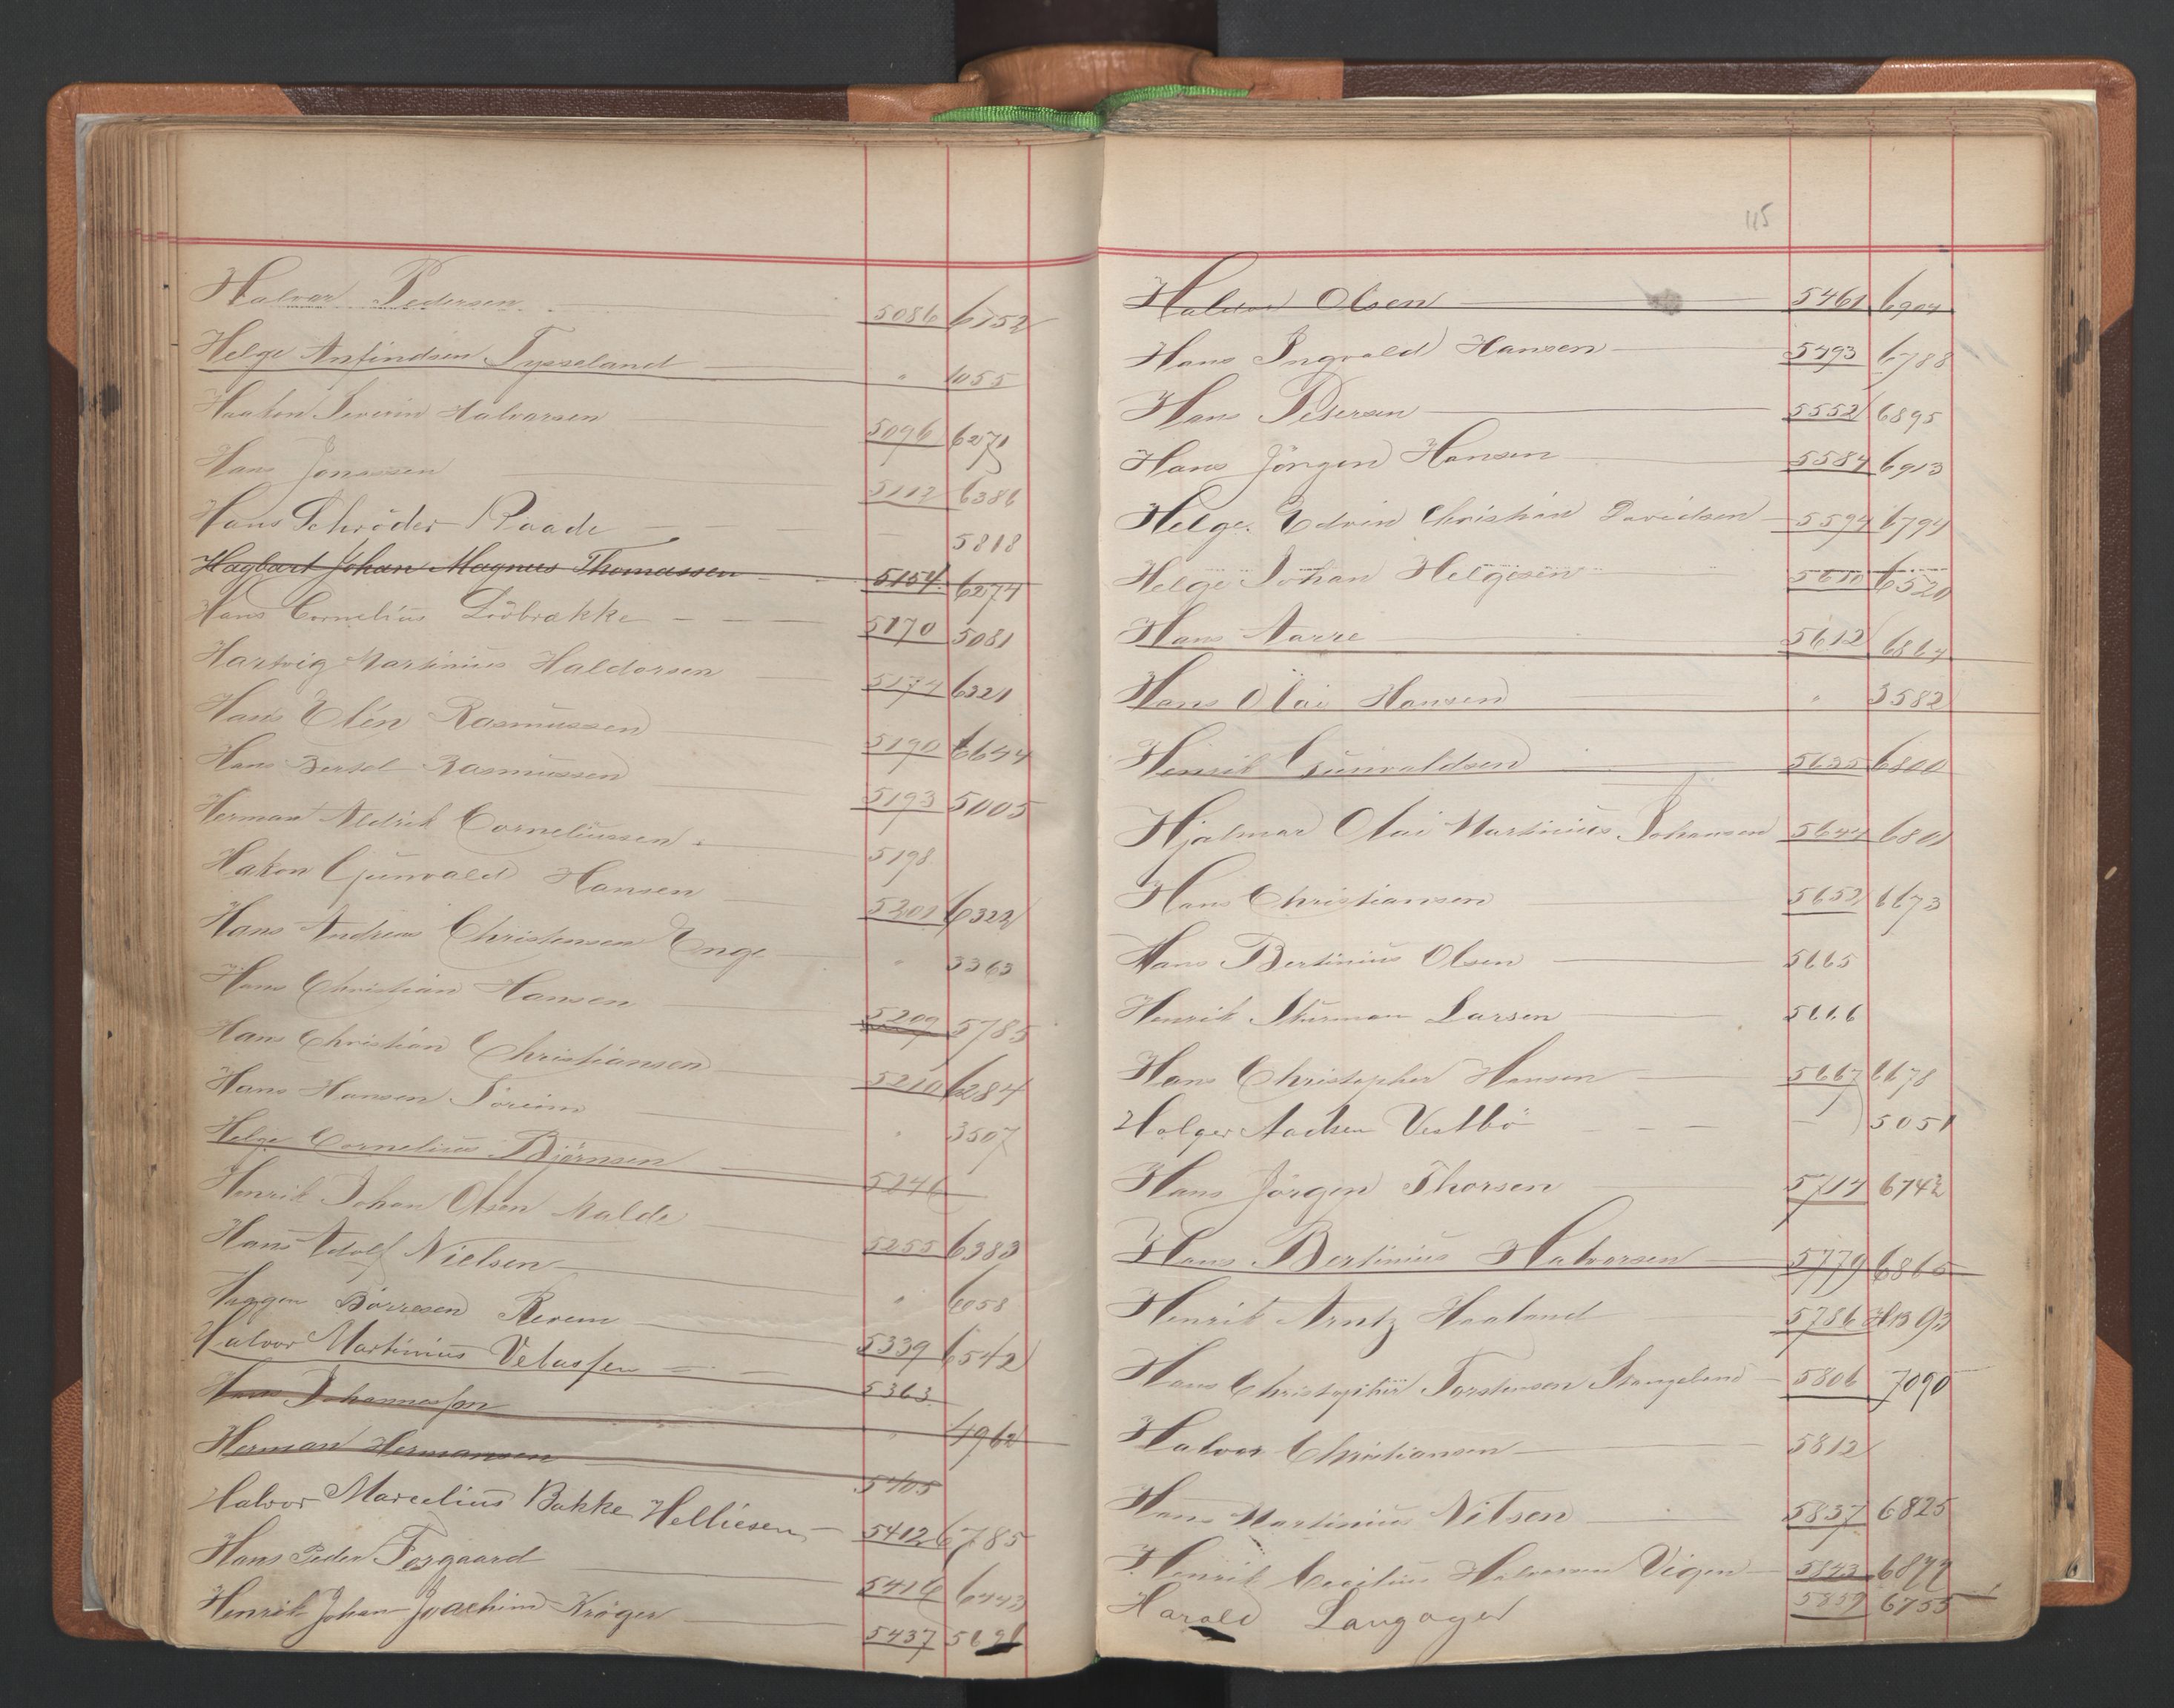 Halvor Pedersen 5086 6752
Helge Anfindsen Tysseland " 1055
Haakon Severin Halvorsen 5096 6271
Hans Jonassen 5112 6386
Hans Schrøder Raade — 5818
Hagbart Johan Magnus Thomassen 5154 6274
Hans Cornelius Lööbrakke 5170 5081
Hartvig Martinius Haldorsen 5174 6321
Hans Elén Rasmussen 5190 6644
Hans Bertel Rasmussen 5193 5005
Herman Aldrik Corneliussen 5198
Hakon Gunvald Hansen 5201 6322
Hans Andreas Christensen Enge " 3363
Hans Christian Hansen 5209 5785
Hans Christian Christiansen 5210 6284
Hans Hansen Soreim " 3507
Helge Cornelius Björnsen 5246
Henrik Johan Olsen Malde 5255 6383
Hans Adolf Nielsen " 6058
Haggen Börresen Revem 5339 6542
Halvor Martinius Vetassen 5363
Hans Johannessen " 4962
Herman Hermansen 5405
Halvor Marcelius Bakke Helliesen 5412 6785
Hans Peder Forgaard 5416 6443
Henrik Johan Joachim Kröger 5437
115
Haldor Olsen 5461 6904
Hans Ingvald Hansen 5493 6788
Hans Petersen 5552 6895
Hans Jörgen Hansen 5584 6913
Helge Edvin Christian Davidsen 5594 6794
Helge Johan Helgesen 5610 6520
Hans Aarre 5612 6864
Hans Olai Hansen " 3582
Henrik Gunvaldsen 5635 6800
Hjalmar Olai Martinius Johansen 5644 6801
Hans Christiansen 5652 6673
Hans Bertinius Olsen 5665
Henrik Sturman Larsen 5666
Hans Christopher Hansen 5667 6678
Holger Aadsen Vestbö — 5051
Hans Jörgen Thorsen 5714 6742
Hans Bertinius Halvorsen 5779 6865
Henrik Arntz Haaland 5786 HB 93
Hans Christopher Torstensen Stangeland 5806 7090
Halvor Christiansen 5812
Hans Martinius Nilsen 5837 6825
Henrik Cecilius Halvorsen Vigen 5843 6877
Harald Langager 5859 6755